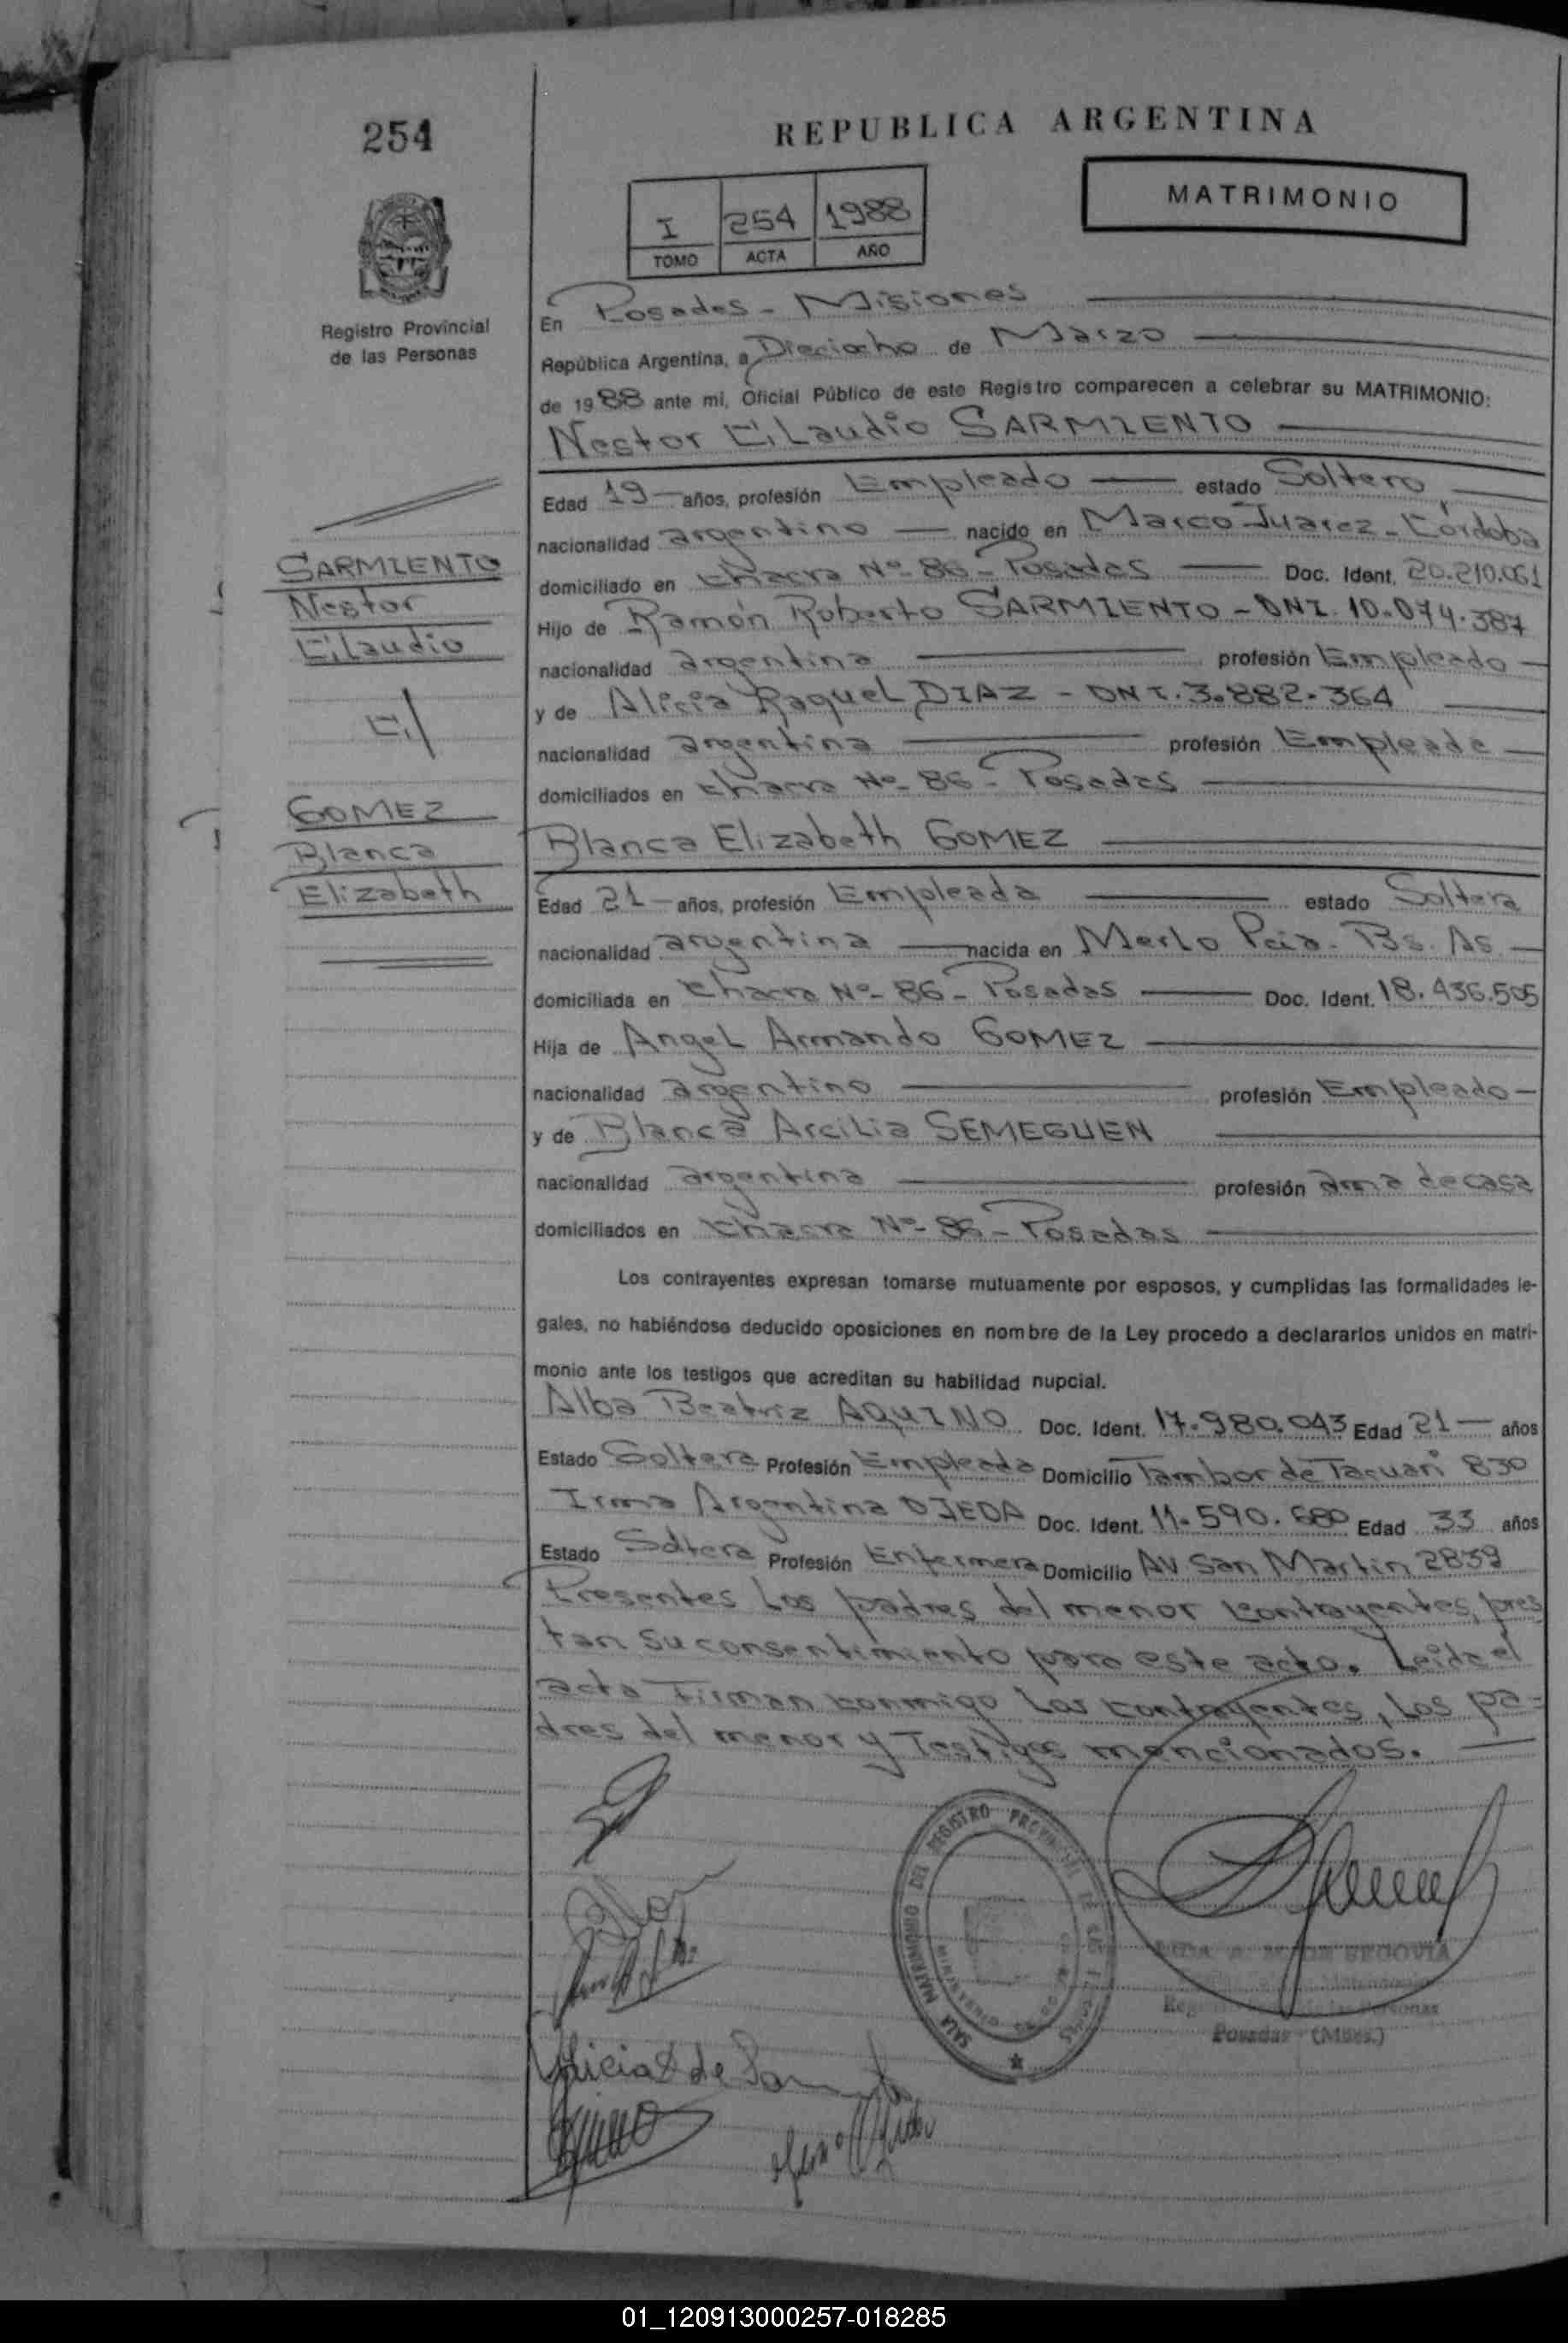 254
REPUBLICA ARGENTINA
MATRIMONIO
I 254 1988
TOMO ACTA AÑO
Registro Provincial
de las Personas
En Posadas - Misiones
República Argentina, a Dieciocho de Marzo
de 1988 ante mi, Oficial Público de este Registro comparecen a celebrar su MATRIMONIO:
Nestor Claudio SARMIENTO
Edad 19 años, profesión Empleado estado Soltero
nacionalidad argentino nacido en Marco Juarez - Córdoba
domiciliado en Chacra Nº 86 - Posadas Doc. Ident. 20.210.061
Hijo de Ramón Roberto SARMIENTO - DNI. 10.074.387
nacionalidad argentina profesión Empleado
y de Alicia Raquel DIAZ - DNI. 3.882.364
nacionalidad argentina profesión Empleada
domiciliados en Chacra Nº 86 - Posadas
SARMIENTO
Nestor
Claudio
C/
GOMEZ
Blanca
Elizabeth
Blanca Elizabeth GOMEZ
Edad 21 años, profesión Empleada estado Soltera
nacionalidad argentina nacida en Merlo Pcia. Bs. As.
domiciliada en Chacra Nº 86 - Posadas Doc. Ident. 18.436.505
Hija de Angel Armando GOMEZ
nacionalidad argentino profesión Empleado
y de Blanca Arcilia SEMEGUEN
nacionalidad argentina profesión ama de casa
domiciliados en Chacra Nº 86 - Posadas
Los contrayentes expresan tomarse mutuamente por esposos, y cumplidas las formalidades le-
gales, no habiéndose deducido oposiciones en nombre de la Ley procedo a declararlos unidos en matri-
monio ante los testigos que acreditan su habilidad nupcial.
Alba Beatriz AQUINO Doc. Ident. 17.980.043 Edad 21 años
Estado Soltera Profesión Empleada Domicilio Tambor de Tacuari 830
Irma Argentina OJEDA Doc. Ident. 11.590.680 Edad 33 años
Estado Soltera Profesión Enfermera Domicilio AV San Martin 2839
Presentes los padres del menor contrayentes, pres
tan su consentimiento para este acto. Leida el
acta firman conmigo los contrayentes, los pa-
dres del menor y Testigos mencionados.
SALA MATRIMONIO DEL REGISTRO PROVINCIAL DE LAS
SEGOVIA
Personas
Posadas (Mnes.)
Alicia de
01_120913000257-018285